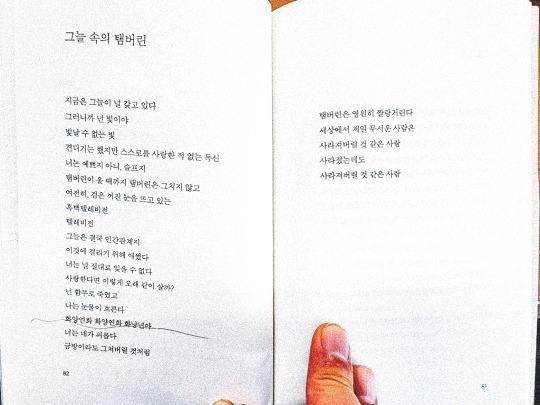 그늘 속의 탬버린
지금은 그늘이 널 갖고 있다
그러니까 넌 빛이야
빛날 수 없는 빛
견디기는 했지만 스스로를 사랑한 적 없는 독신
너는 예쁘지 아니, 슬프지
탬버린이 울 때까지 탬버린은 그치지 않고
여전히, 검은 꺼진 눈을 뜨고 있는
흑백텔레비전
텔레비전
그늘은 결국 인간관계지
이것에 걸리기 위해 애썼다
너는 널 절대로 잊을 수 없다
사랑한다면 이렇게 오래 같이 살까?
넌 함부로 죽었고
나는 눈물이 흐른다
화양연화 화양연화 화냥년아
너는 네가 괴롭다
금방이라도 그쳐버릴 것처럼
82
탬버린은 영원히 짤랑거린다
세상에서 제일 무서운 사람은
사라져버릴 것 같은 사람
사라졌는데도
사라져버릴 것 같은 사람
83